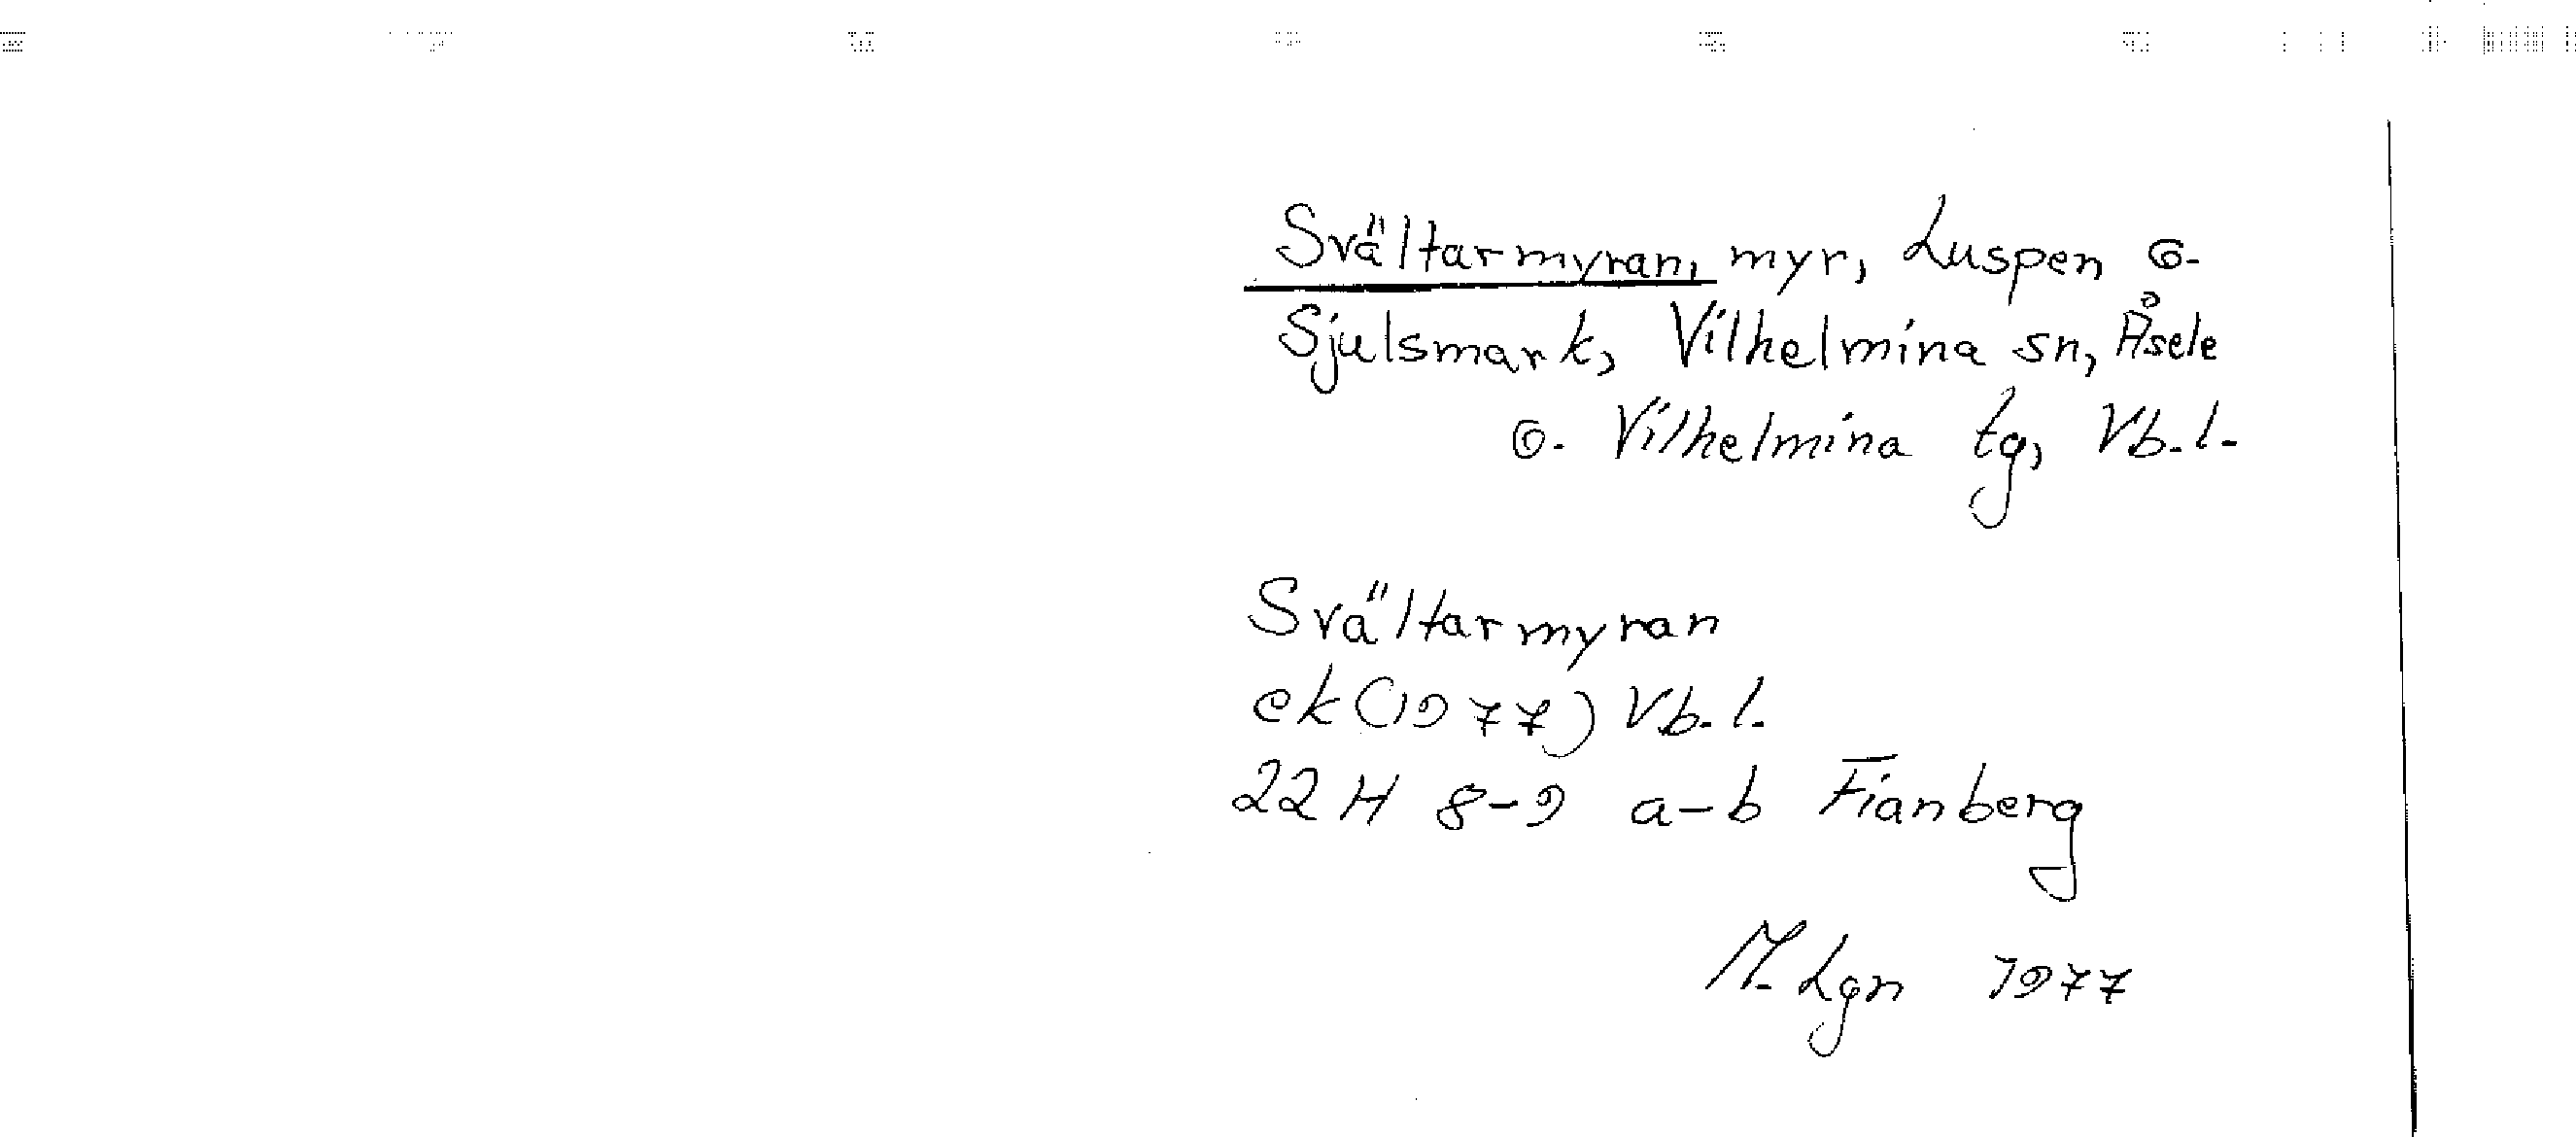 Svältarmyran, myr, Luspen o.
Sjulsmark, Vilhelmina sn, Åsele
o. Vilhelmina tg, Vb. l.
Svältarmyran
ek (1977) Vb. l.
22 H 8-9 a-b Fianberg
M. Lgn 1977